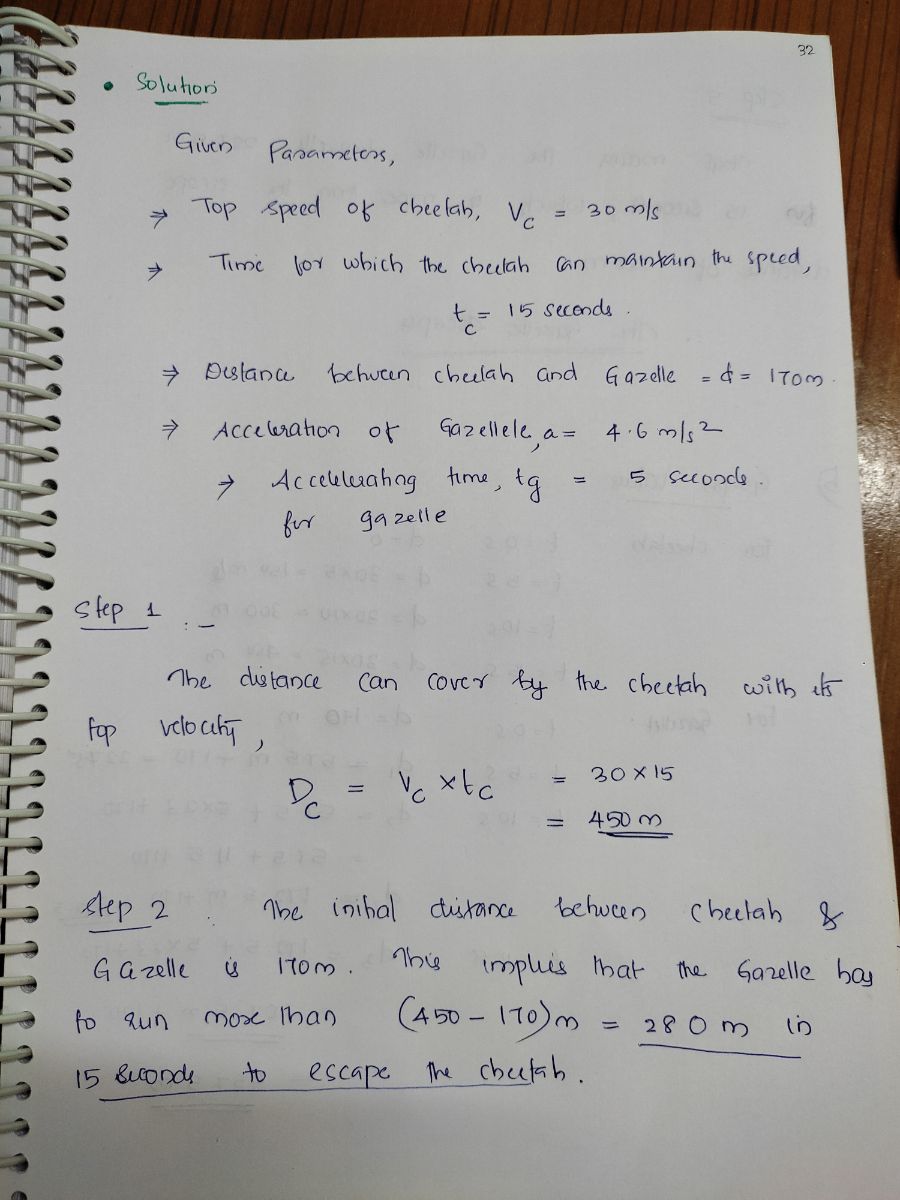 32
• Solution
Given Parameters,
⇒ Top speed of cheetah, Vc = 30 m/s
⇒ Time for which the cheetah can maintain the speed,
tc = 15 seconds.
⇒ Distance between cheetah and Gazelle = d = 170m.
⇒ Acceleration of Gazellele, a = 4.6 m/s²
→ Accelelerating time, tg = 5 seconds.
for gazelle
Step 1 :-
The distance can cover by the cheetah with its
top velocity,
Dc = Vc × tc = 30 × 15
= 450 m
Step 2. The initial distance between Cheetah &
Gazelle is 170m. This implies that the Gazelle has
to run more than (450 – 170)m = 280 m in
15 seconds to escape the cheetah.